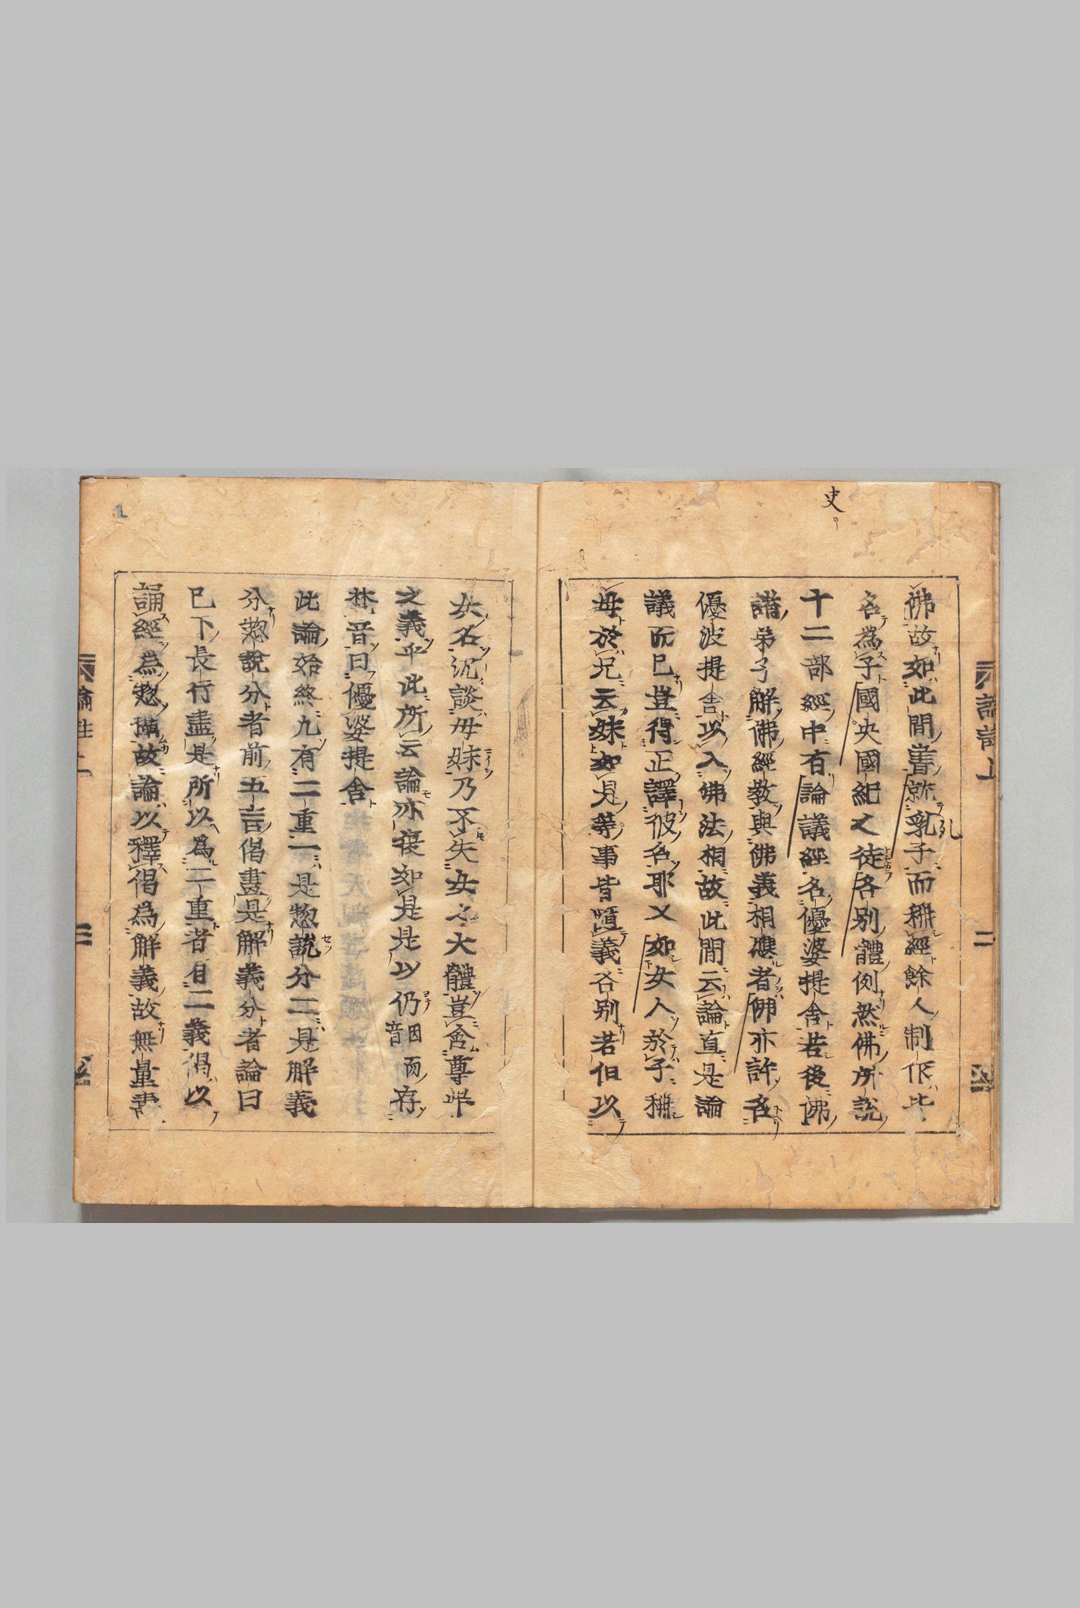 史
佛故如此間書就乳子而稱經餘人制作比
名為子國央國紀之徒各別體例然佛所說
十二部經中有論議經名優婆提舍若後佛
諸弟子解佛經教與佛義相應者佛亦許名
優波提舍以入佛法相故此間云論直是論
議而已豈得正譯彼名耶又如女人於子稱
母於兄云妹如是等事皆隨義各別若但以
女名汎談母妹乃不失女之大體豈含尊卑
之義乎此所云論亦復如是是以仍因而存
梵音曰優婆提舍
此論始終凡有二重一是惣說分二是解義
分惣說分者前五言偈盡是解義分者論曰
已下長行盡是所以為二重者有二義偈以
誦經為惣攝故論以釋偈為解義故無量壽
論註上 二
論註上 二